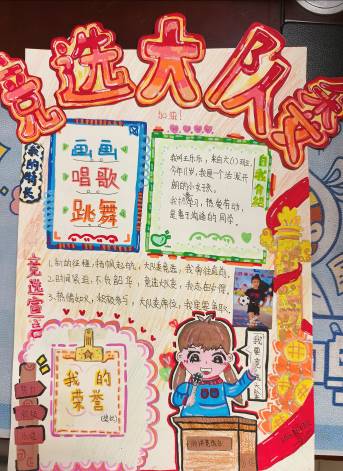 竞选大队委
加油!
我的特长
画画
唱歌
跳舞
自我介绍
我叫王乐乐，来自六(1)班，
今年11岁，我是一个活泼开
朗的小女孩。
学习，热爱劳动，
是善于沟通的同学
竞选宣言
1.新的征程，扬帆起航，大队委竞选，我勇往直前。
2.时间紧迫，不负韶华，竞选大队委，我志在必得。
3.热情如火，积极参与，大队委席位，我要争取。
我的
荣誉
我要竞选大队委